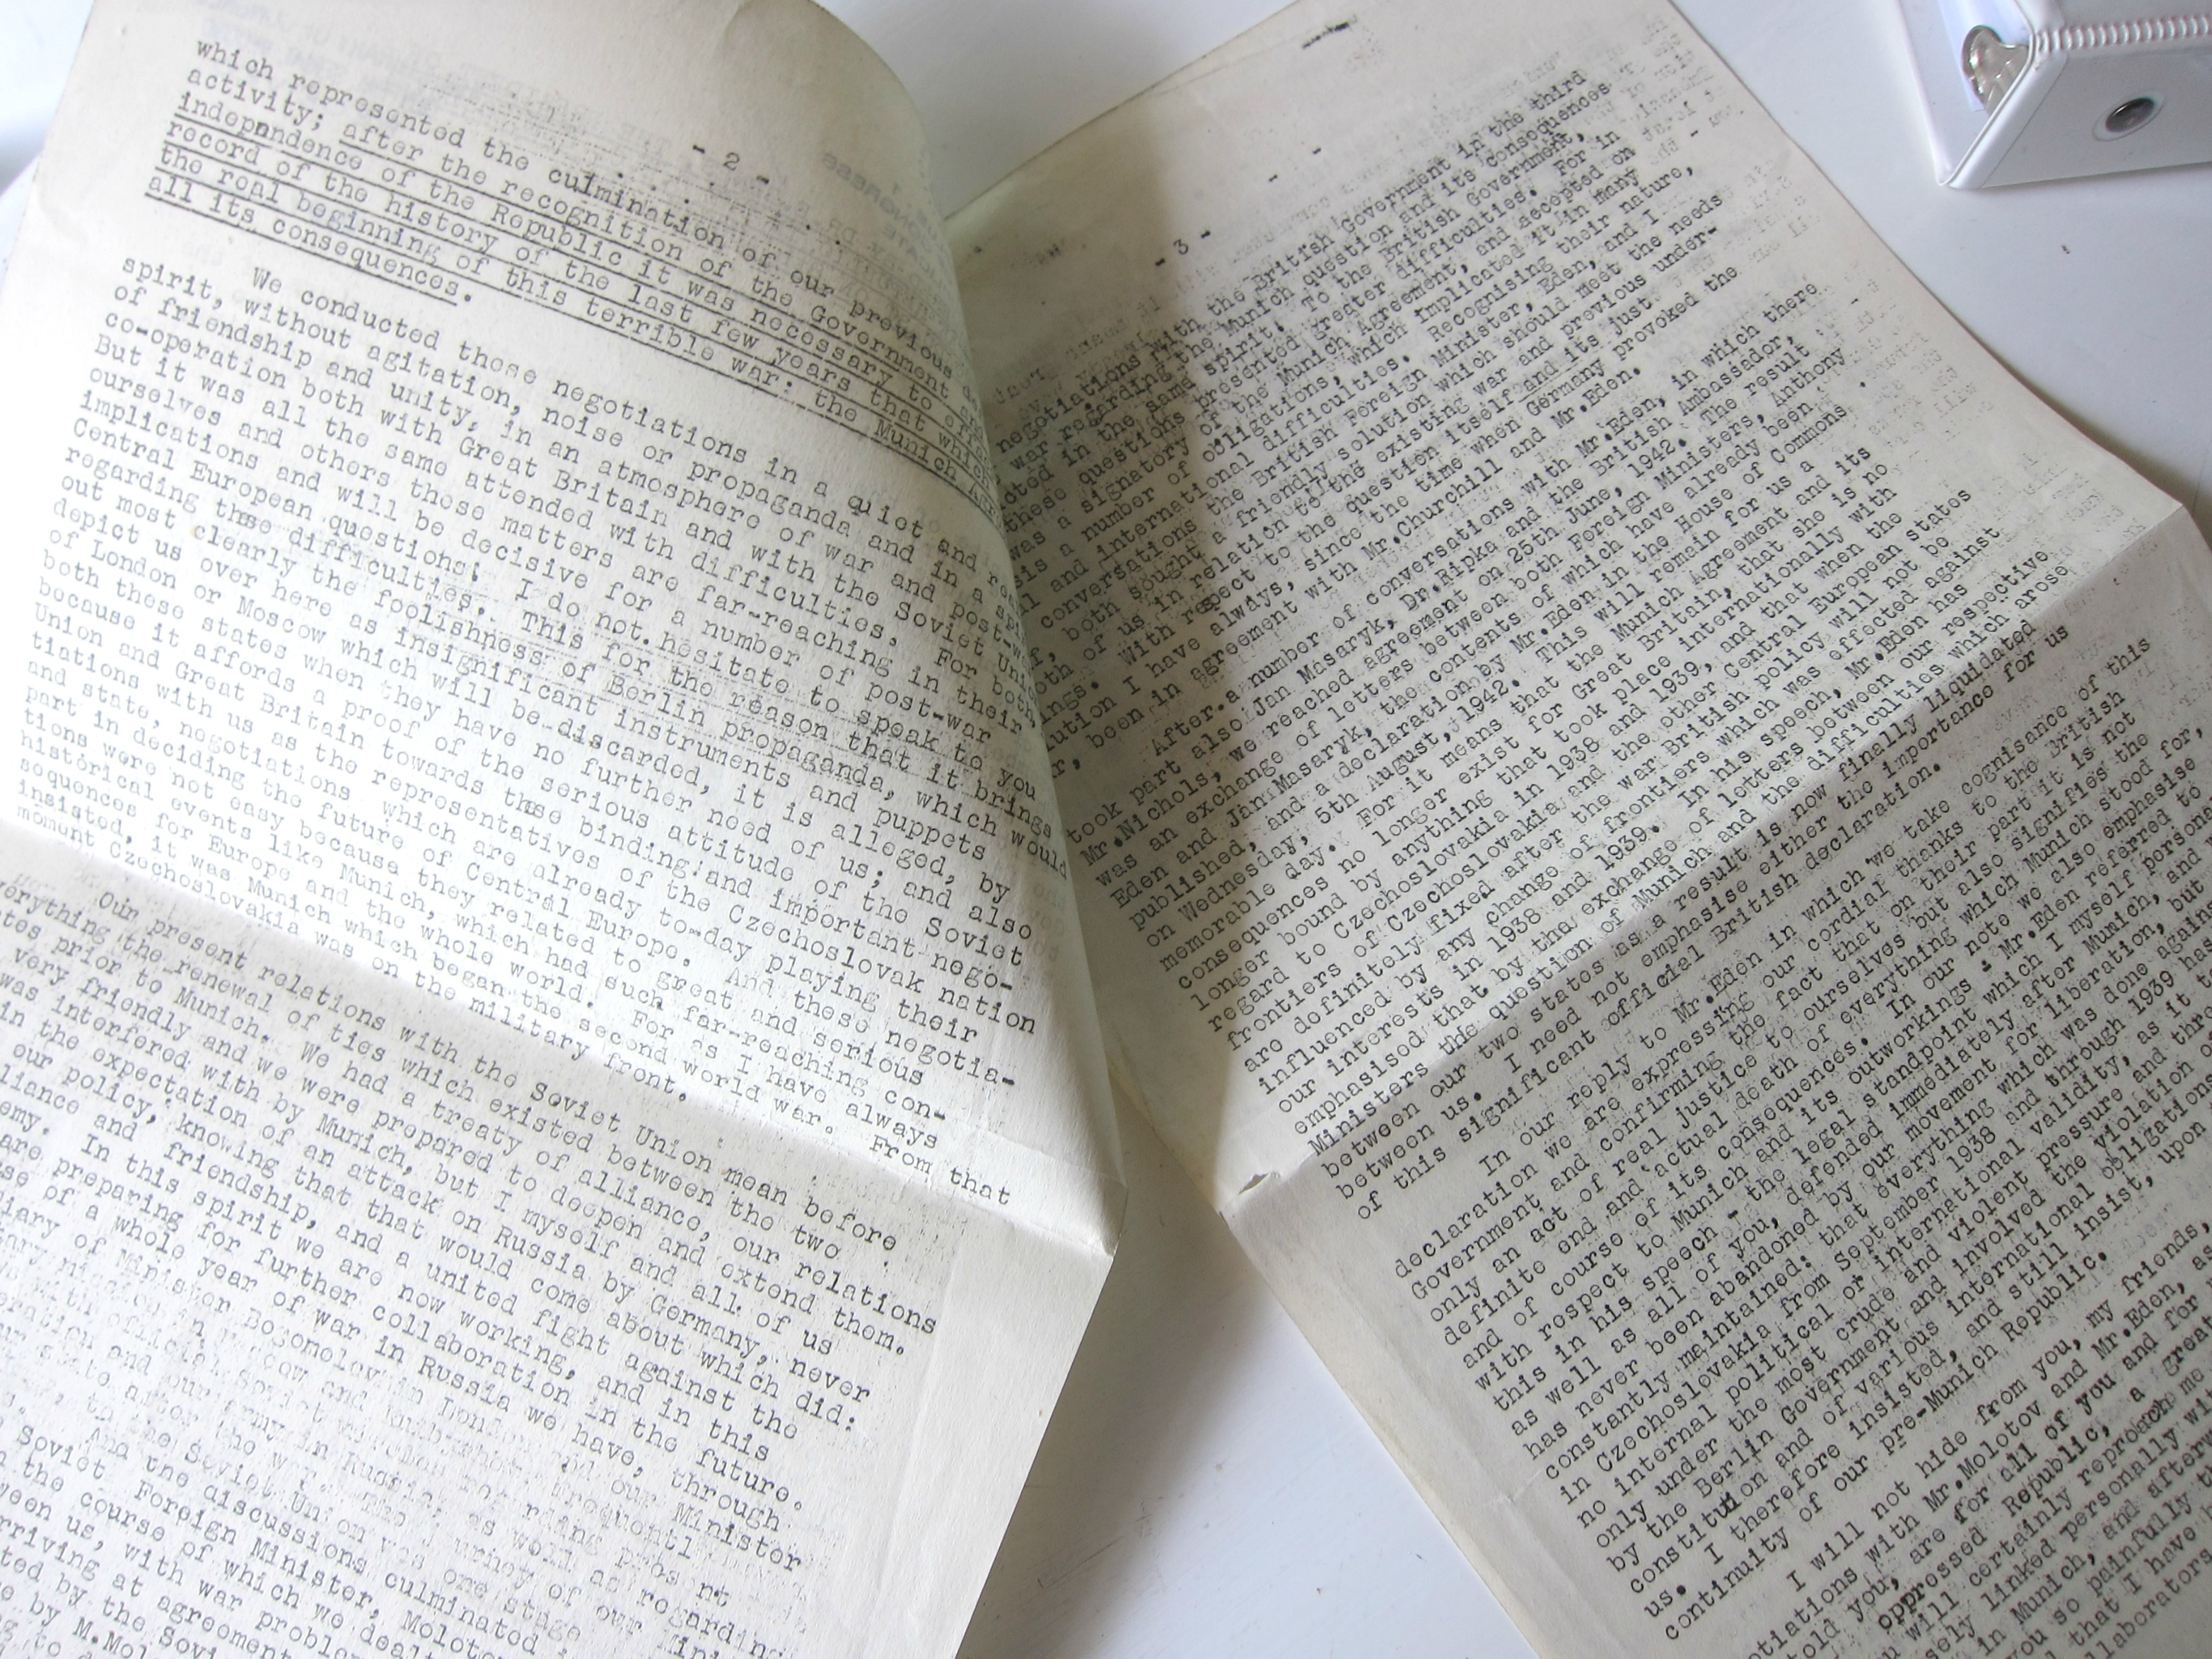 - 2 -
which represented the culmination of our previous
activity; after the recognition of the Government and
indepndence of the Republic it was necessary to
record of the history of the last few years that which
the roal beginning of this terrible war: the Munich
all its consequences.
We conducted those negotiations in a quiet and
spirit, without agitation, noise or propaganda and in a
of friendship and unity, in an atmosphere of war and post-
co-operation both with Great Britain and with the Soviet
But it was all the same attended with difficulties. For both
ourselves and others those matters are far-reaching in their
implications and will be decisive for a number of post-war
Central European questions. I do not hesitate to speak to you
regarding these difficulties. This for the reason that it brings
out most clearly the foolishness of Berlin propaganda, which would
depict us over here as insignificant instruments and puppets
of London or Moscow which will be discarded, it is alleged, by
both these states when they have no further need of us; and also
because it affords a proof of the serious attitude of the Soviet
Union and Great Britain towards these binding and important nego-
tiations with us as the representatives of the Czechoslovak nation
and state, negotiations which are already to-day playing their
part in deciding the future of Central Europe. And these negotia-
tions were not easy because they related to great and serious
historical events like Munich, which had such far-reaching con-
sequences for Europe and the whole world. For as I have always
insisted, it was Munich which began the second world war. From that
moment Czechoslovakia was on the military front.
Our present relations with the Soviet Union mean before
everything the renewal of ties which existed between the two
prior to Munich. We had a treaty of alliance, our relations
very friendly and we were prepared to deepen and extend them.
was interfered with by Munich, but I myself and all of us
in the expectation of an attack on Russia by Germany, never
our policy, knowing that that would come about which did:
and friendship, and a united fight against the
In this spirit we are now working, and in this
are preparing for further collaboration in the future.
of a whole year of war in Russia we have, through
of Minister Bogomolov in London and our Minister
in and
our army in Russia, as well as regarding
after the
to the Soviet Union was one stage
And the discussions culminated
Soviet Foreign Minister,
the course of which we dealt
us, with war
at agreement
by the
by M.
- 3 -
negotiations with the British Government in the third
war regarding the Munich question and its consequences.
in the same spirit. To the British Government,
these questions presented greater difficulties. For in
was a signatory of the Munich Agreement, and accepted on
a number of obligations, which implicated it in many
and international difficulties. Recognising their nature,
conversations the British Foreign Minister, Eden, and I
both sought a friendly solution which should meet the needs
of us in relation to the existing war and previous under-
With respect to the question itself and its just
I have always, since the time when Germany provoked the
been in agreement with Mr.Churchill and Mr.Eden.
After a number of conversations with Mr.Eden, in which there
took part also Jan Masaryk, Dr.Ripka and the British Ambassador,
Mr.Nichols, we reached agreement on 25th June, 1942. The result
was an exchange of letters between both Foreign Ministers, Anthony
Eden and Jan Masaryk, the contents of which have already been
published, and a declaration by Mr.Eden in the House of Commons
on Wednesday, 5th August, 1942. This will remain for us a
memorable day. For it means that the Munich Agreement and its
consequences no longer exist for Great Britain, that she is no
longer bound by anything that took place internationally with
regard to Czechoslovakia in 1938 and 1939, and that when the
frontiers of Czechoslovakia and the other Central European states
are definitely fixed after the war British policy will not be
influenced by any change of frontiers which was effected against
our interests in 1938 and 1939. In his speech, Mr.Eden has
emphasised that by the exchange of letters between our respective
Ministers the question of Munich and the difficulties which arose
between our two states as a result is now finally liquidated
between us. I need not emphasise either the importance for us
of this significant official British declaration.
In our reply to Mr.Eden in which we take cognisance of this
declaration we are expressing our cordial thanks to the British
Government and confirming the fact that on their part it is not
only an act of real justice to ourselves but also signifies the
definite end and actual death of everything which Munich stood for,
and of course of its consequences. In our note we also emphasise
with respect to Munich and its outworkings - Mr.Eden referred to
this in his speech - the legal standpoint which I myself
as well as all of you, defended immediately after Munich, and
has never been abandoned by our movement for liberation, but
constantly maintained: that everything which was done
in Czechoslovakia from September 1938 and through 1939 has
no internal political or international validity, as it
only under the most crude and violent pressure and
by the Berlin Government and involved the violation of
constitution and of various international obligations
us. I therefore insisted, and still insist, upon
continuity of our pre-Munich Republic.
I will not hide from you, my friends,
with Mr.Molotov and Mr.Eden, as
told you, are for all of you and for
oppressed Republic, a great
will certainly reproach me
linked personally
in Munich, and
you so painfully
that I have